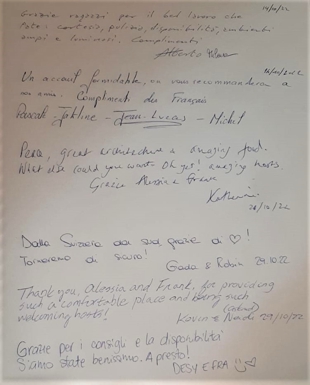 Grazie ragazzi per il bel lavoro che
fate: cortesia, pulizia, disponibilità, ambienti
ampi e luminosi. Complimenti
Un accueil formidable, on vous recommandera à
nos amis. Compliments des Français
Pascal - - Jean-Lucas - Michel
Peace, great architecture & amazing food.
What else could you want? Oh yes! amazing hosts.
Grazie Alessia e Frank
Dalla Svizzera un grazie di ♡!
Torneremo di sicuro!
Giada & Robin 29.10.22
Thank you, Alessia and Frank, for providing
such a comfortable place and being such
welcoming hosts!
Kevin & Nadi 29/10/22
Grazie per i consigli e la disponibilità
Siamo state benissimo. A presto!
DESY E FRA